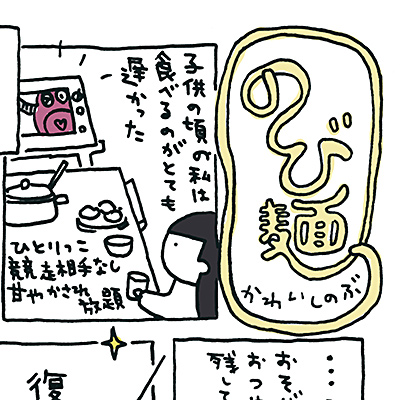 のび麺
かわいしのぶ
子供の頃の私は
食べるのがとても
遅かった
ひとりっこ
競走相手なし
甘やかされ
放題
・・・
おそば
おつゆ
残して
復